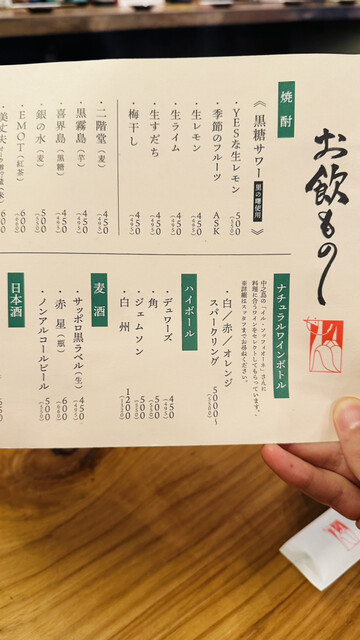 お飲もの
焼酎
《 黒糖サワー 里の曙使用 》
・YESな生レモン 500 (550)
・季節のフルーツ ASK
・生レモン 450 (495)
・生ライム 450 (495)
・生すだち 450 (495)
・梅干し 450 (495)
・二階堂（麦） 450 (495)
・黒霧島（芋） 450 (495)
・喜界島（黒糖） 450 (495)
・銀の水（麦） 500 (550)
・EMOT（紅茶） 600 (660)
・美丈夫 600
ナチュラルワインボトル
中之島の「イル・ソフィオーネ」さんに
料理に合うワインをセレクトしてもらっています。
※詳細はスタッフまでお尋ねください。
・白／赤／オレンジ
スパークリング 5000〜 (5500)
ハイボール
・デュワーズ 450 (495)
・角 500 (550)
・ジェムソン 500 (550)
・白州 1200 (1320)
麦酒
・サッポロ黒ラベル（生） 450 (495)
・赤星（瓶） 600 (660)
・ノンアルコールビール 500 (550)
日本酒